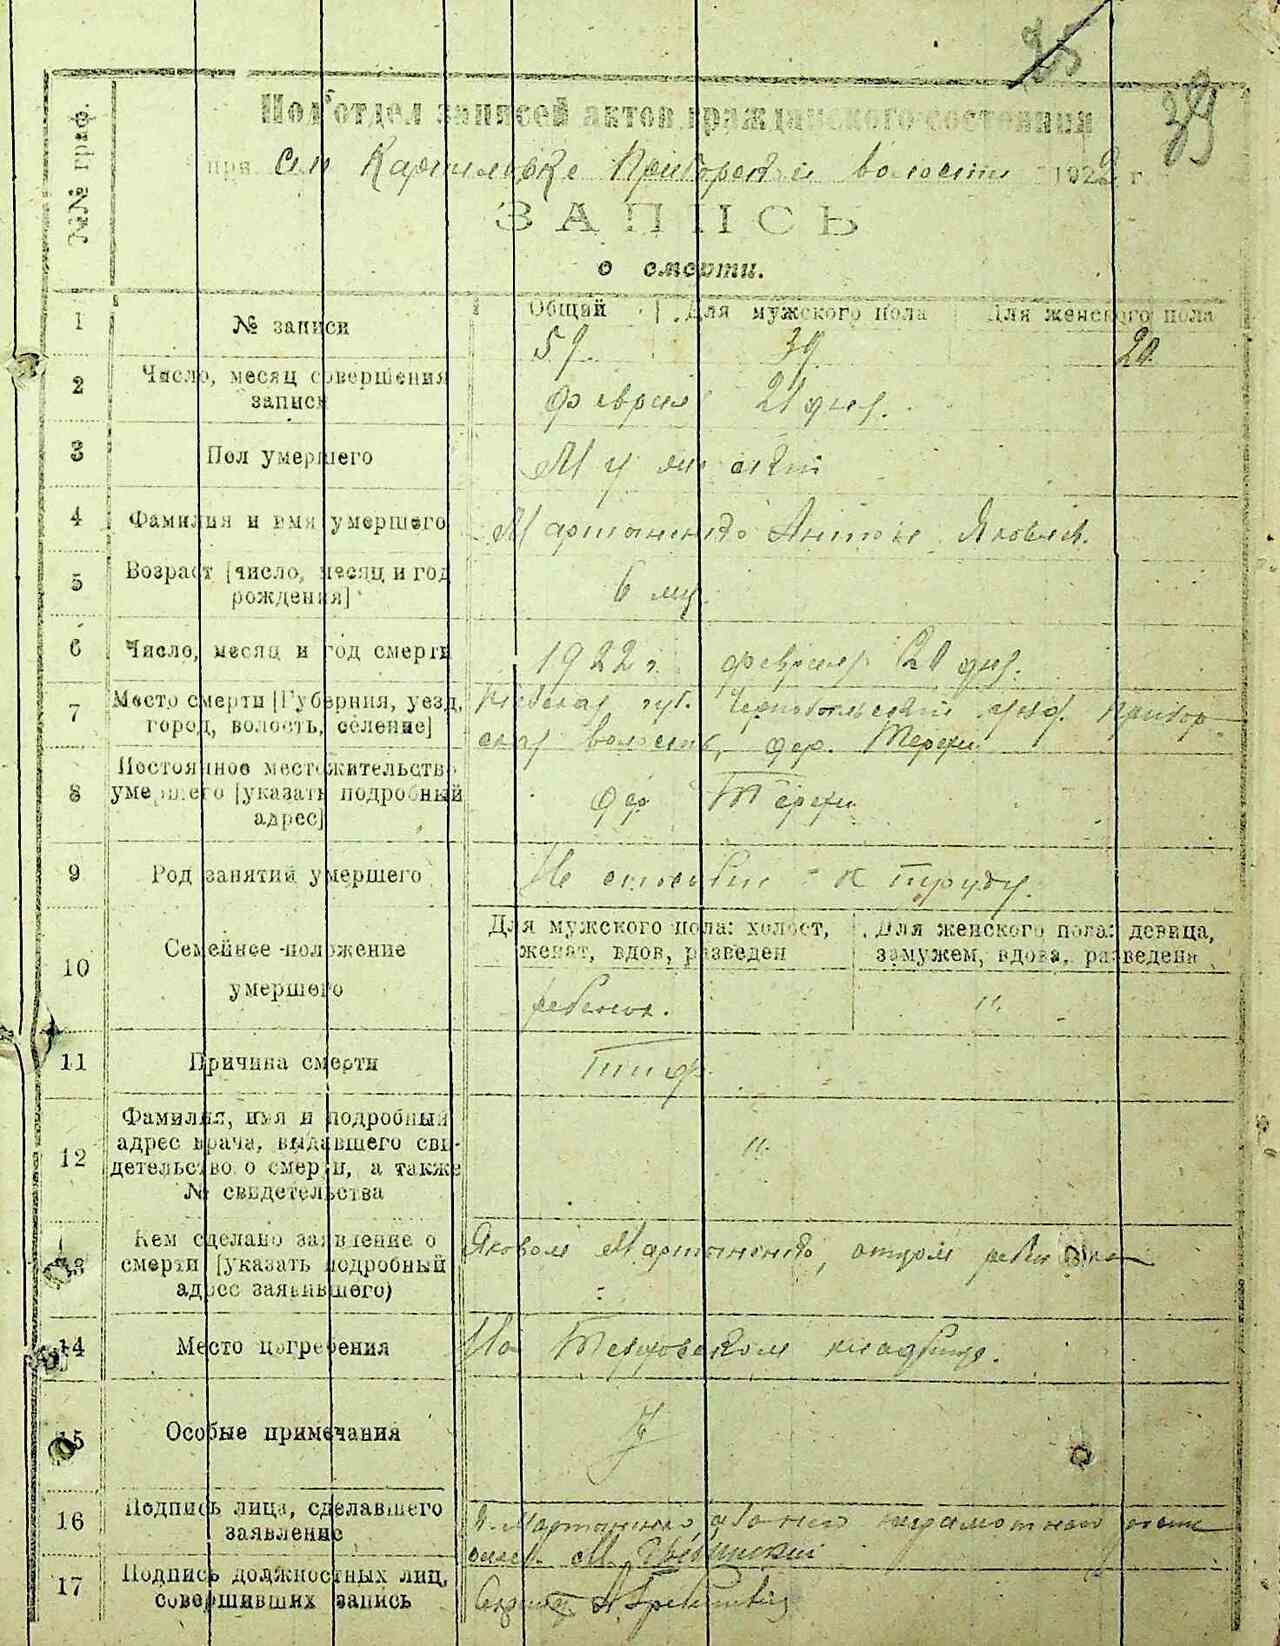 25
39
№№ граф.
Подотдел записей актов гражданского состояния
при селе Карпиловке Приборской волости 1922 г.
ЗАПИСЬ
о смерти.
1 № записи Общий Для мужского пола Для женского пола
59 39 20
2 Число, месяц совершения
записи
Февраля 21 дня.
3 Пол умершего Мужской
4 Фамилия и имя умершего Мартыненко Антон Яковлев.
5 Возраст [число, месяц и год
рождения]
6 мц.
6 Число, месяц и год смерти 1922 г. февраля 20 дня.
7 Место смерти [Губерния, уезд,
город, волость, селение]
Киевская губ. Чернобыльский уезд. Прибор-
ская волость, дер. Терехи
8 Постоянное местожительство
умершего [указать подробный
адрес]
дер Терехи
9 Род занятий умершего Не способен к труду.
10 Семейное положение
умершего
Для мужского пола: холост,
женат, вдов, разведен
Для женского пола: девица,
замужем, вдова, разведена
ребенок. "
11 Причина смерти Тиф.
12 Фамилия, имя и подробный
адрес врача, выдавшего сви-
детельство о смерти, а также
№ свидетельства
"
13 Кем сделано заявление о
смерти [указать подробный
адрес заявившего)
Яковом Мартыненко, отцом ребенка
14 Место погребения На Териховском кладбище.
15 Особые примечания
16 Подпись лица, сделавшего
заявление
Я. Мартыненко, а за него неграмотного
М.
17 Подпись должностных лиц,
совершивших запись